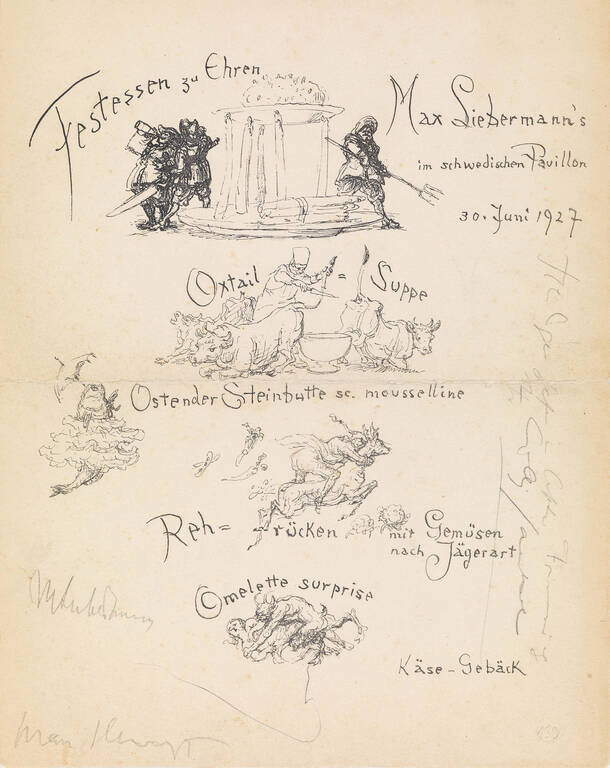 Festessen zu Ehren
Max Liebermann's
im schwedischen Pavillon
30. Juni 1927
Oxtail = Suppe
Ostender Steinbutte sc. mousselline
Reh = rücken mit Gemüsen
nach Jägerart
Omelette surprise
Käse - Gebäck
MLiebermann
Max Slevogt